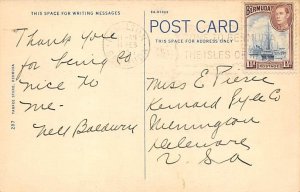 THIS SPACE FOR WRITING MESSAGES
POST CARD
THIS SPACE FOR ADDRESS ONLY
BERMUDA
POSTAGE
THE ISLES O
Thank you
for being so
nice to
me -
Nell Baldwin
Miss E Pierce
Co
Delaware
U.S.A
297